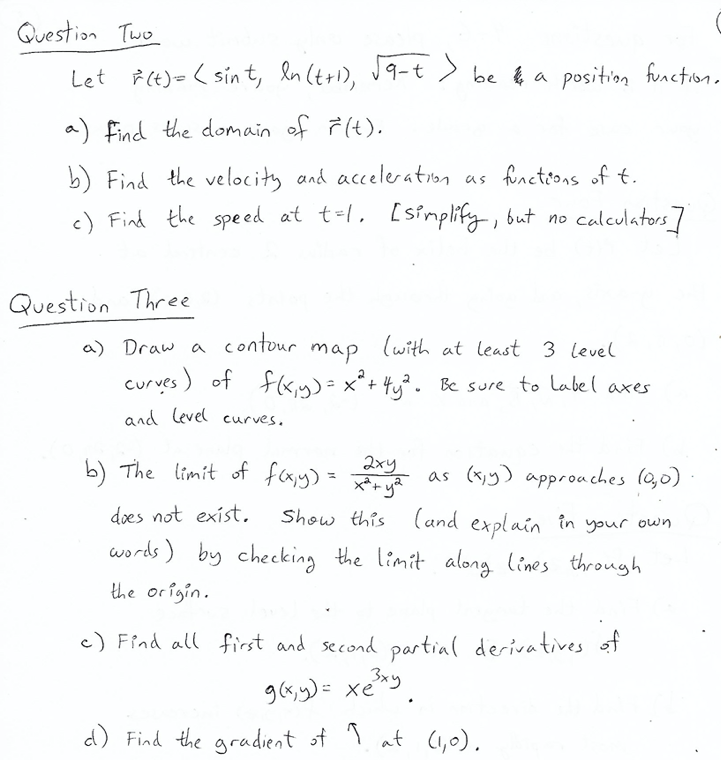 Question Two
Let r⃗(t) = ⟨ sin t, ln(t+1), √(9-t) ⟩ be a position function.
a) Find the domain of r⃗(t).
b) Find the velocity and acceleration as functions of t.
c) Find the speed at t=1. [simplify, but no calculators]
Question Three
a) Draw a contour map (with at least 3 level
curves) of f(x,y) = x² + 4y². Be sure to label axes
and level curves.
b) The limit of f(x,y) = 2xy/(x²+y²) as (x,y) approaches (0,0)
does not exist. Show this (and explain in your own
words) by checking the limit along lines through
the origin.
c) Find all first and second partial derivatives of
g(x,y) = xe^(3xy).
d) Find the gradient of ↑ at (1,0).